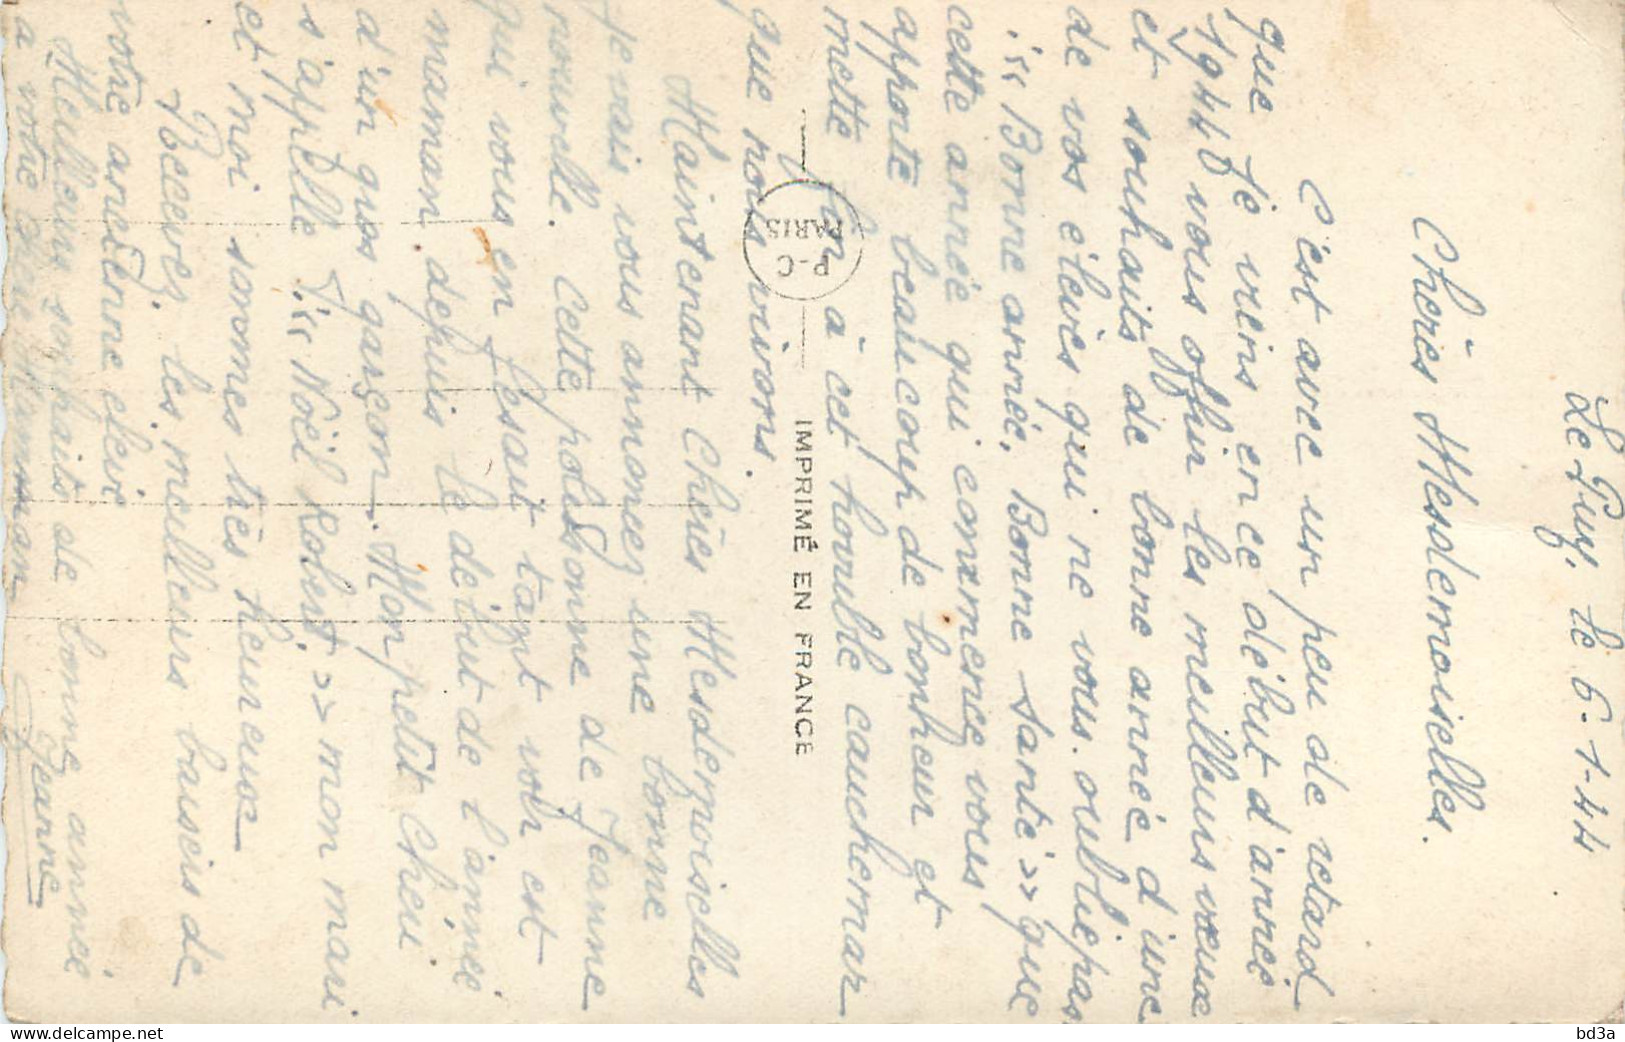 Le Puy, le 6-1-44
Chères Mesdemoiselles.
C'est avec un peu de retard
que je viens en ce début d'année
1944 vous offrir les meilleurs vœux
et souhaits de bonne année d'une
de vos élèves qui ne vous oublie pas
"Bonne année, Bonne Santé" que
cette année qui commence vous
apporte beaucoup de bonheur et
mette fin à cet horrible cauchemar
que nous vivons.
Maintenant Chères Mesdemoiselles
je vais vous annoncez une bonne
nouvelle. Cette polissonne de Jeanne
qui vous en fesait tant voir est
maman depuis le début de l'année
d'un gros garçon. Mon petit cheri
s'appelle "Noël Robert" mon mari
et moi sommes très heureux
Recevez les meilleurs baisers de
votre ancienne élève
Jeanne
Meilleurs souhaits de bonne année
a votre chère Maman
P-C
PARIS
IMPRIMÉ EN FRANCE
www.delcampe.net
bd3a